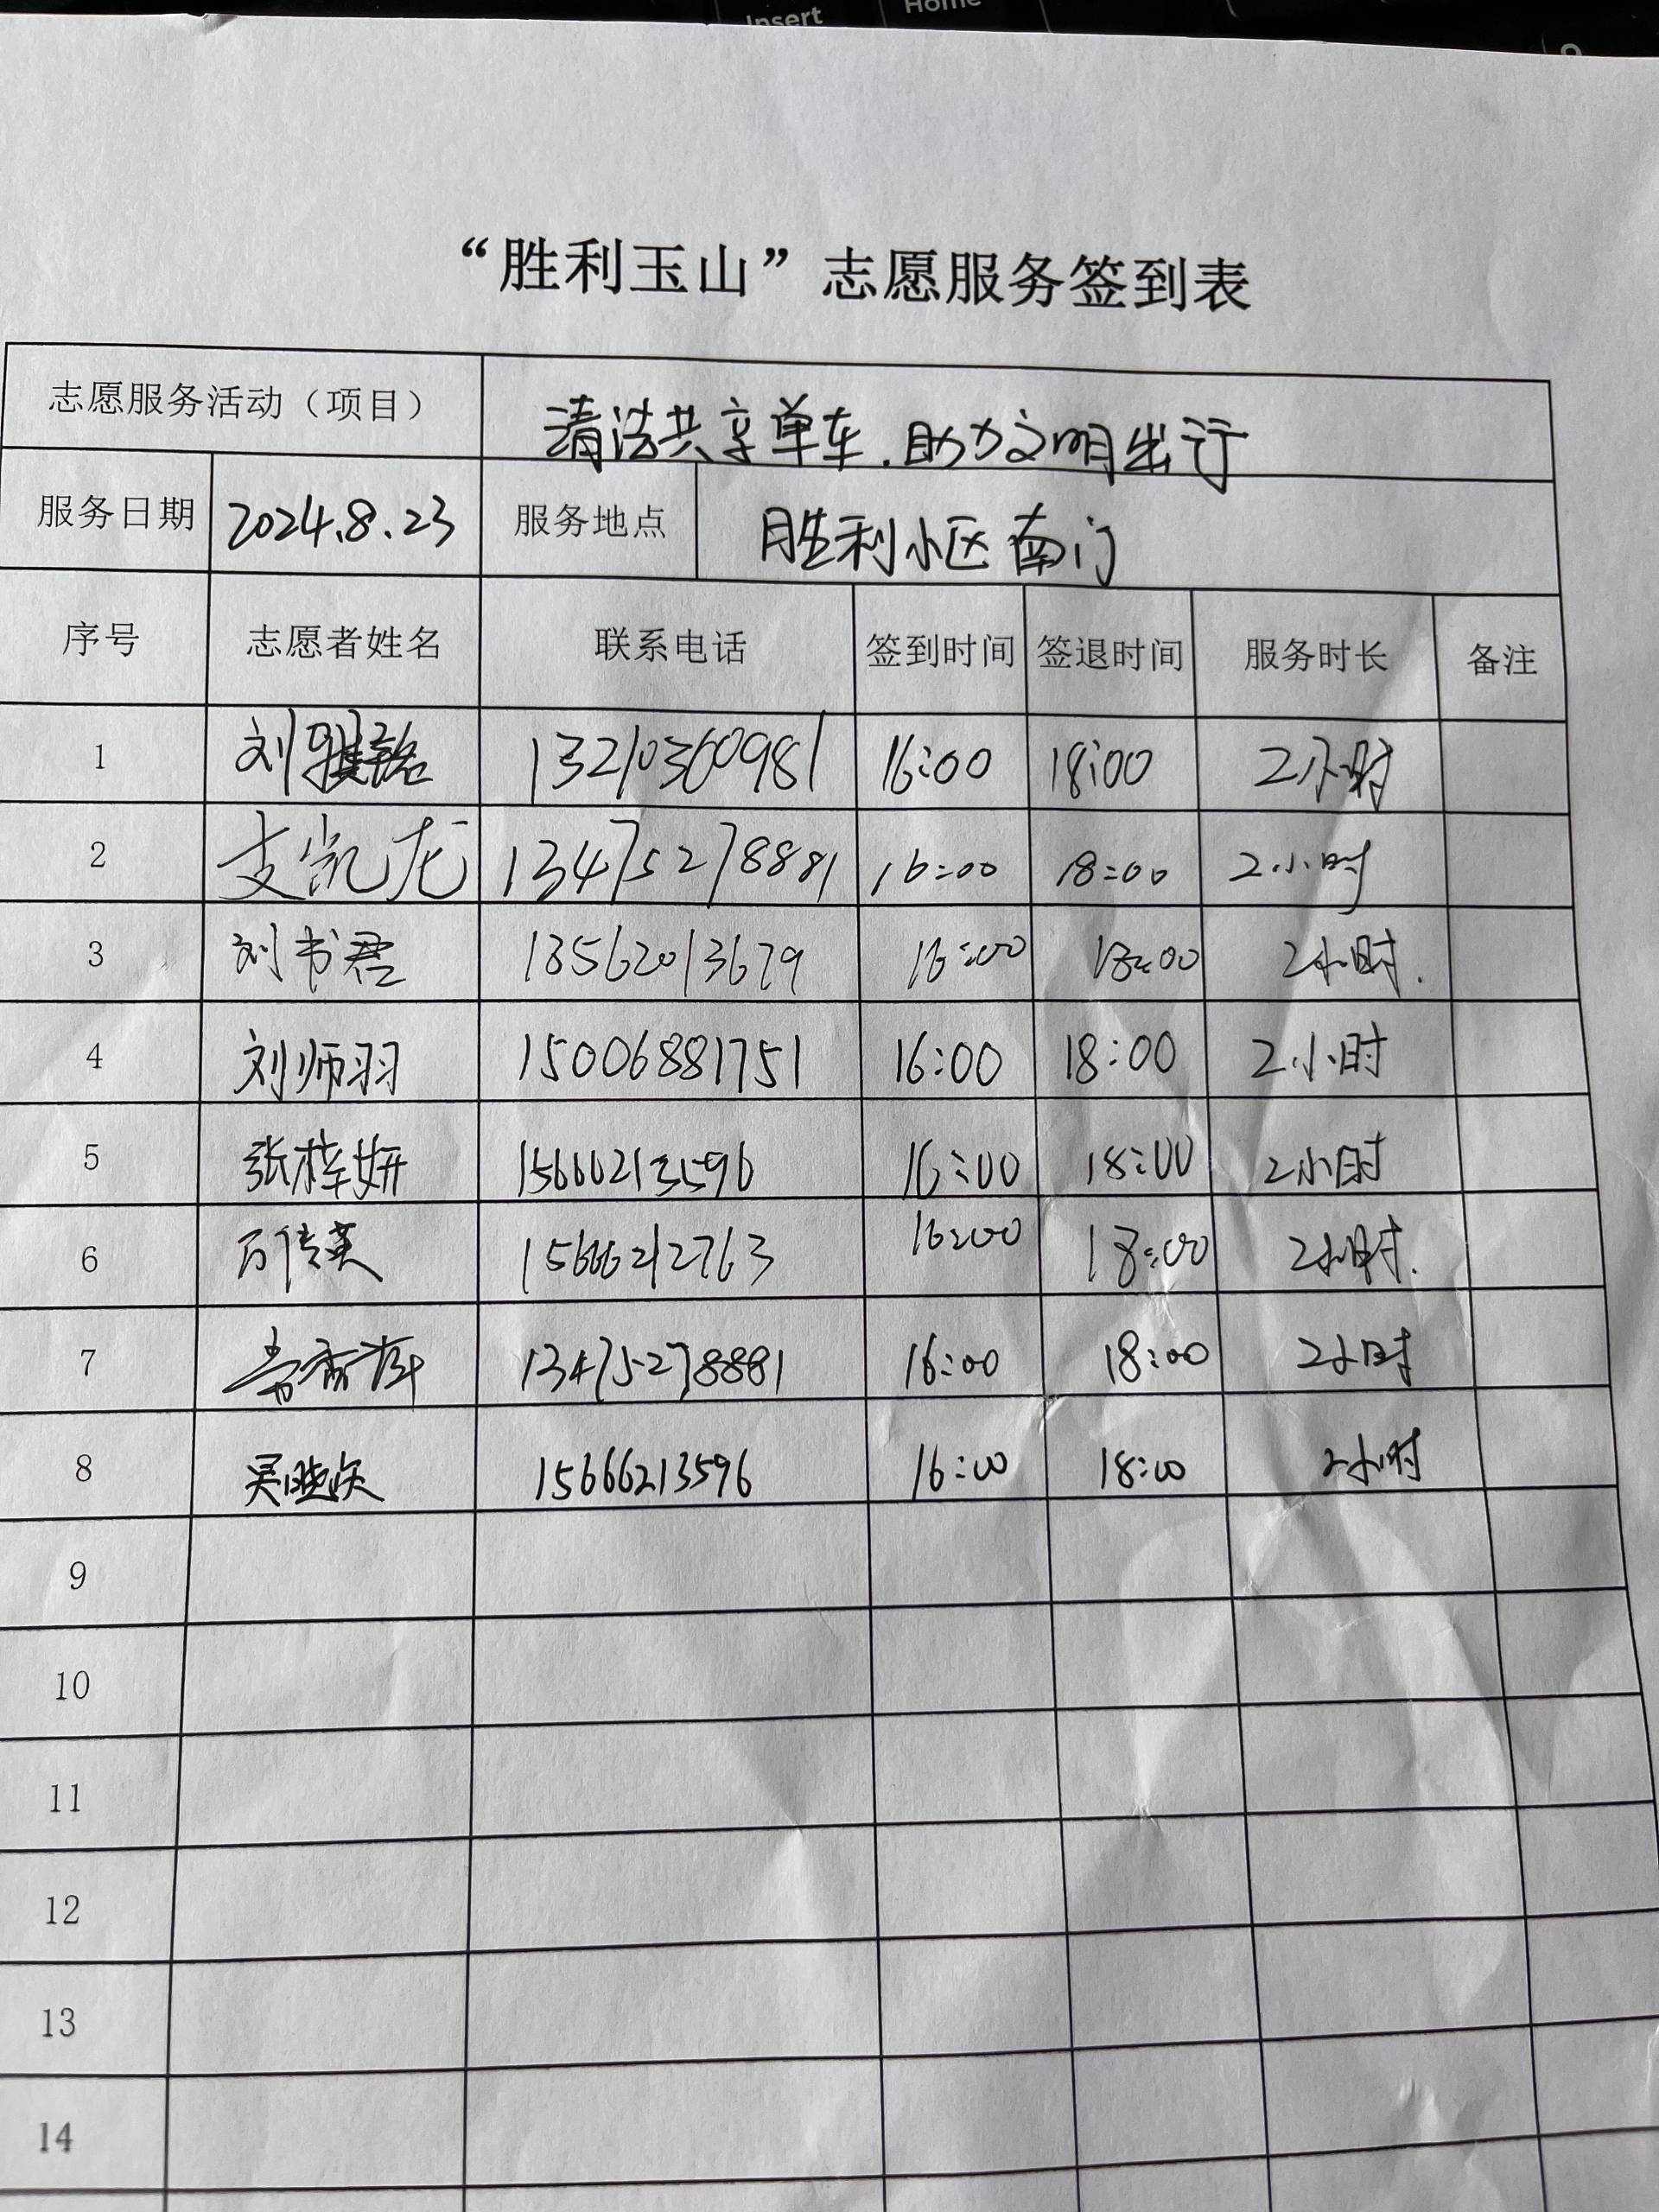 Insert
Home
“胜利玉山”志愿服务签到表
志愿服务活动（项目） 清洁共享单车.助力文明出行
服务日期 2024.8.23 服务地点 胜利小区南门
序号 志愿者姓名 联系电话 签到时间 签退时间 服务时长 备注
1 刘 13210360981 16:00 18:00 2小时
2 支凯龙 13475278881 16:00 18:00 2小时
3 刘书君 13562013679 16:00 18:00 2小时.
4 刘师羽 15006881751 16:00 18:00 2小时
5 张梓妍 15666213596 16:00 18:00 2小时
6 万传英 15666212763 16:00 18:00 2小时.
7 13475278881 16:00 18:00 2小时
8 吴晓 15666213596 16:00 18:00 2小时
9
10
11
12
13
14